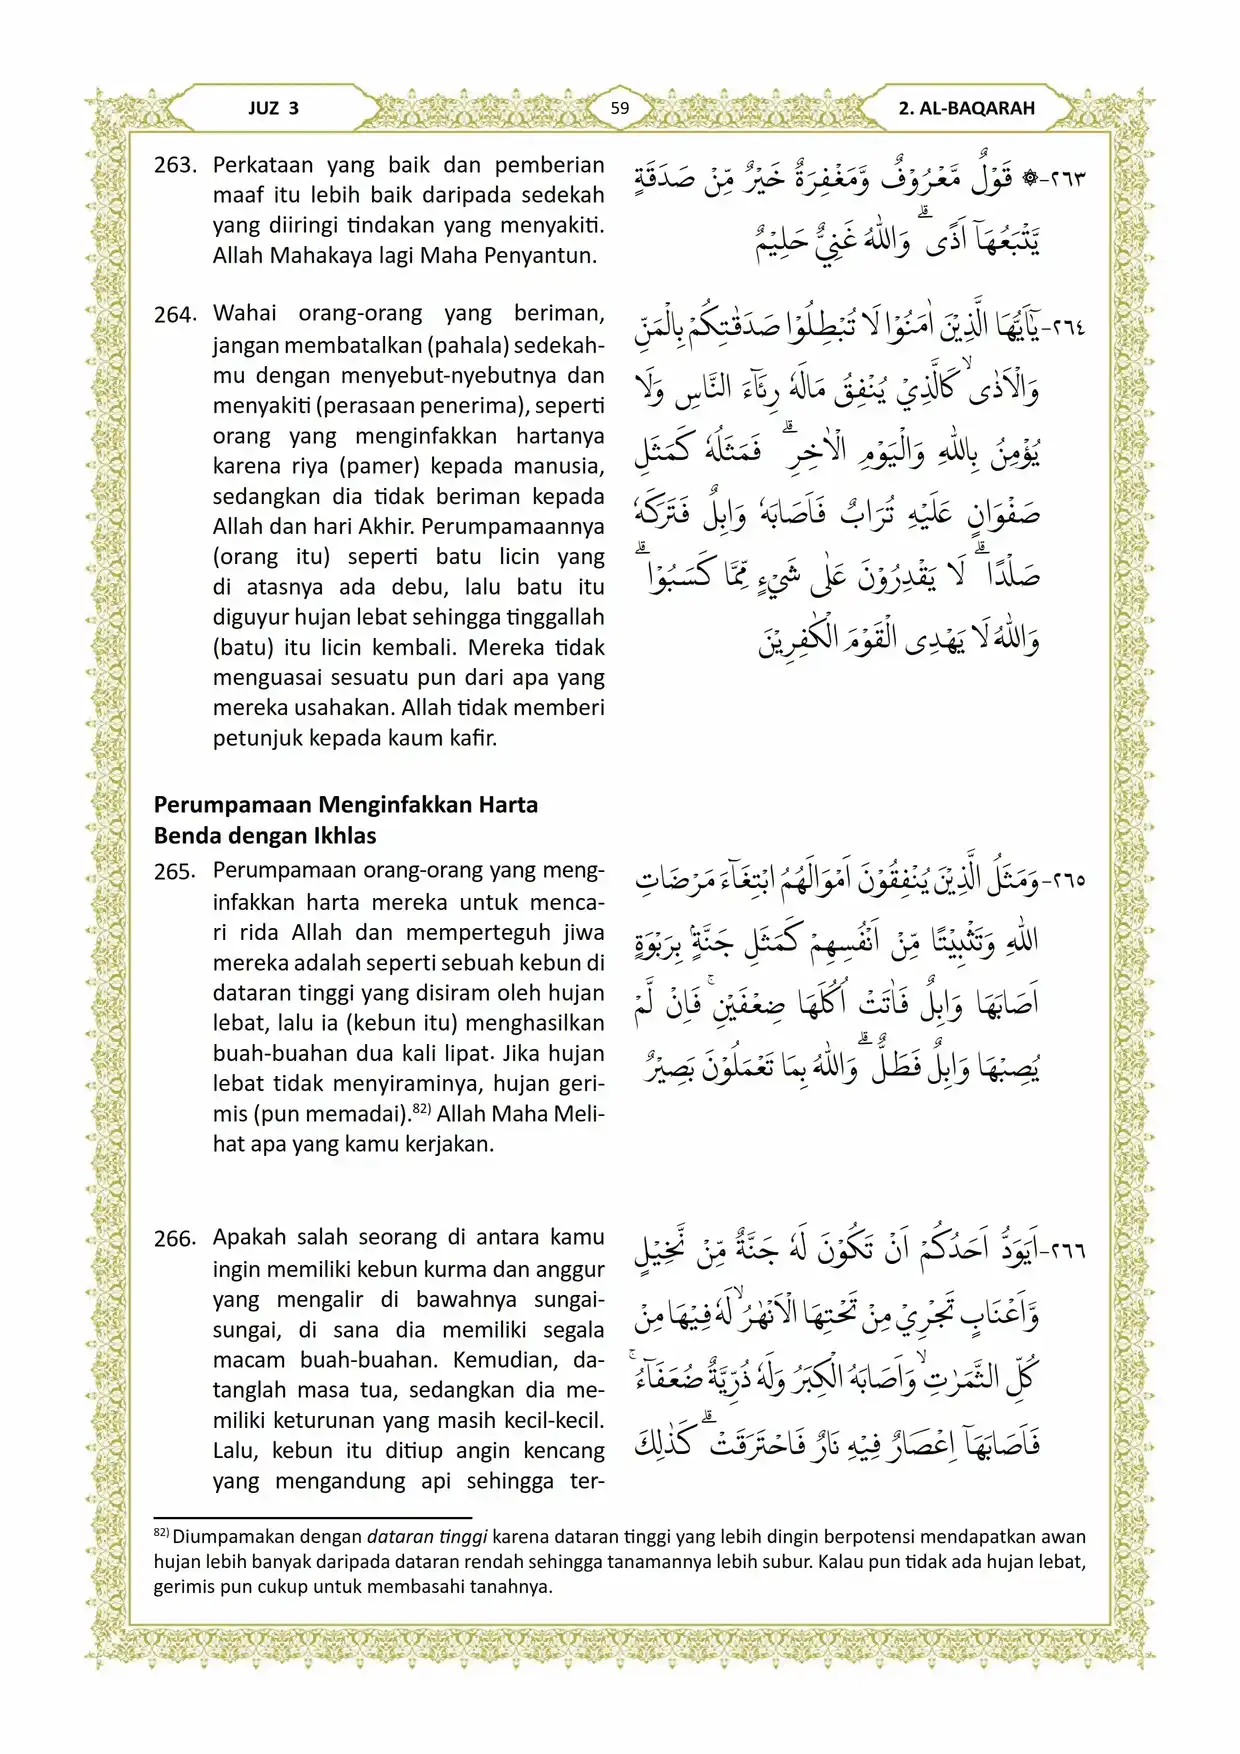 JUZ 3
59
2. AL-BAQARAH
263. Perkataan yang baik dan pemberian
maaf itu lebih baik daripada sedekah
yang diiringi tindakan yang menyakiti.
Allah Mahakaya lagi Maha Penyantun.
٢٦٣- ۞ قَوْلٌ مَّعْرُوْفٌ وَّمَغْفِرَةٌ خَيْرٌ مِّنْ صَدَقَةٍ
يَّتْبَعُهَآ اَذًى ۗ وَاللّٰهُ غَنِيٌّ حَلِيْمٌ
264. Wahai orang-orang yang beriman,
jangan membatalkan (pahala) sedekah-
mu dengan menyebut-nyebutnya dan
menyakiti (perasaan penerima), seperti
orang yang menginfakkan hartanya
karena riya (pamer) kepada manusia,
sedangkan dia tidak beriman kepada
Allah dan hari Akhir. Perumpamaannya
(orang itu) seperti batu licin yang
di atasnya ada debu, lalu batu itu
diguyur hujan lebat sehingga tinggallah
(batu) itu licin kembali. Mereka tidak
menguasai sesuatu pun dari apa yang
mereka usahakan. Allah tidak memberi
petunjuk kepada kaum kafir.
٢٦٤- يٰٓاَيُّهَا الَّذِيْنَ اٰمَنُوْا لَا تُبْطِلُوْا صَدَقٰتِكُمْ بِالْمَنِّ
وَالْاَذٰىۙ كَالَّذِيْ يُنْفِقُ مَالَهٗ رِئَاۤءَ النَّاسِ وَلَا
يُؤْمِنُ بِاللّٰهِ وَالْيَوْمِ الْاٰخِرِۗ فَمَثَلُهٗ كَمَثَلِ
صَفْوَانٍ عَلَيْهِ تُرَابٌ فَاَصَابَهٗ وَابِلٌ فَتَرَكَهٗ
صَلْدًا ۗ لَا يَقْدِرُوْنَ عَلٰى شَيْءٍ مِّمَّا كَسَبُوْا ۗ
وَاللّٰهُ لَا يَهْدِى الْقَوْمَ الْكٰفِرِيْنَ
Perumpamaan Menginfakkan Harta
Benda dengan Ikhlas
265. Perumpamaan orang-orang yang meng-
infakkan harta mereka untuk menca-
ri rida Allah dan memperteguh jiwa
mereka adalah seperti sebuah kebun di
dataran tinggi yang disiram oleh hujan
lebat, lalu ia (kebun itu) menghasilkan
buah-buahan dua kali lipat. Jika hujan
lebat tidak menyiraminya, hujan geri-
mis (pun memadai).82) Allah Maha Meli-
hat apa yang kamu kerjakan.
٢٦٥- وَمَثَلُ الَّذِيْنَ يُنْفِقُوْنَ اَمْوَالَهُمُ ابْتِغَاۤءَ مَرْضَاتِ
اللّٰهِ وَتَثْبِيْتًا مِّنْ اَنْفُسِهِمْ كَمَثَلِ جَنَّةٍۢ بِرَبْوَةٍ
اَصَابَهَا وَابِلٌ فَاٰتَتْ اُكُلَهَا ضِعْفَيْنِۚ فَاِنْ لَّمْ
يُصِبْهَا وَابِلٌ فَطَلٌّ ۗوَاللّٰهُ بِمَا تَعْمَلُوْنَ بَصِيْرٌ
266. Apakah salah seorang di antara kamu
ingin memiliki kebun kurma dan anggur
yang mengalir di bawahnya sungai-
sungai, di sana dia memiliki segala
macam buah-buahan. Kemudian, da-
tanglah masa tua, sedangkan dia me-
miliki keturunan yang masih kecil-kecil.
Lalu, kebun itu ditiup angin kencang
yang mengandung api sehingga ter-
٢٦٦- اَيَوَدُّ اَحَدُكُمْ اَنْ تَكُوْنَ لَهٗ جَنَّةٌ مِّنْ نَّخِيْلٍ
وَّاَعْنَابٍ تَجْرِيْ مِنْ تَحْتِهَا الْاَنْهٰرُۙ لَهٗ فِيْهَا مِنْ
كُلِّ الثَّمَرٰتِۙ وَاَصَابَهُ الْكِبَرُ وَلَهٗ ذُرِّيَّةٌ ضُعَفَاۤءُۚ
فَاَصَابَهَآ اِعْصَارٌ فِيْهِ نَارٌ فَاحْتَرَقَتْ ۗ كَذٰلِكَ
82) Diumpamakan dengan dataran tinggi karena dataran tinggi yang lebih dingin berpotensi mendapatkan awan
hujan lebih banyak daripada dataran rendah sehingga tanamannya lebih subur. Kalau pun tidak ada hujan lebat,
gerimis pun cukup untuk membasahi tanahnya.